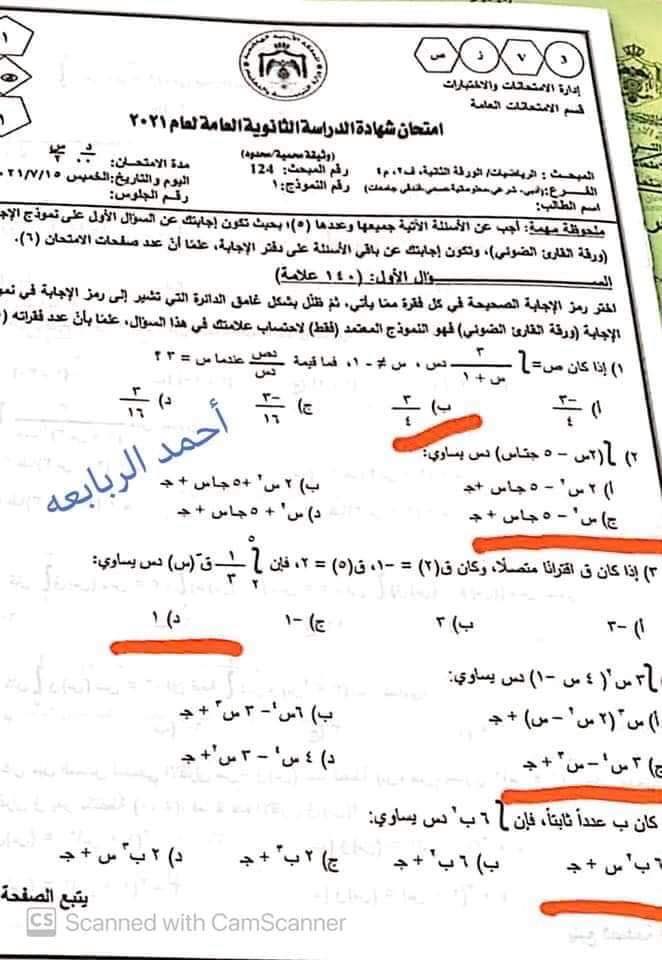 د ٧ ز س
إدارة الامتحانات والاختبارات
قسم الامتحانات العامة
١
امتحان شهادة الدراسة الثانوية العامة لعام ٢٠٢١
(وثيقة محمية/محدود)
المبحث : الرياضيات/ الورقة الثانية، ف٢، م٤
رقم المبحث: 124
مدة الامتحان: ٠٠ : ٢
د س
الفرع:
رقم النموذج: ١
اليوم والتاريخ: الخميس ٢٠٢١/٧/١٥
اسم الطالب:
رقم الجلوس:
ملحوظة مهمة: أجب عن الأسئلة الآتية جميعها وعددها (٥)؛ بحيث تكون إجابتك عن السؤال الأول على نموذج
(ورقة القارئ الضوئي)، وتكون إجابتك عن باقي الأسئلة على دفتر الإجابة، علمًا أنّ عدد صفحات الامتحان (٦).
السؤال الأول: (١٤٠ علامة)
اختر رمز الإجابة الصحيحة في كل فقرة ممّا يأتي، ثم ظلّل بشكل غامق الدائرة التي تشير إلى رمز الإجابة في
الإجابة (ورقة القارئ الضوئي) فهو النموذج المعتمد (فقط) لاحتساب علامتك في هذا السؤال، علمًا بأنّ عدد فقراته
١) إذا كان ص= ∫ ٣/(س + ١) دس ، س ≠ -١، فما قيمة دص/دس عندما س = ٣ ؟
أ) -٣/٤ ب) ٣/٤ ج) -٣/١٦ د) ٣/١٦
أحمد الربابعه
٢) ∫(٢س - ٥ جتاس) دس يساوي:
أ) ٢ س² - ٥ جاس + جـ ب) ٢ س² + ٥ جاس + جـ
ج) س² - ٥ جاس + جـ د) س² + ٥ جاس + جـ
٣) إذا كان ق اقترانًا متصلًا، وكان ق(٢) = -١، ق(٥) = ٢، فإن ∫₂⁵ ١/٣ ق َ(س) دس يساوي:
أ) -٣ ب) ٣ ج) -١ د) ١
) ∫ ٣ س² (٤ س - ١) دس يساوي:
أ) س³ (٢ س² - س) + جـ ب) ٦س⁴ - ٣ س³ + جـ
ج) ٣ س⁴ - س³ + جـ د) ٤ س⁴ - ٣ س² + جـ
كان ب عدداً ثابتاً، فإن ∫ ٦ ب² دس يساوي:
٦ ب² س + جـ ب) ٦ ب² + جـ ج) ٢ ب³ + جـ د) ٢ ب³ س + جـ
يتبع الصفحة
CS Scanned with CamScanner